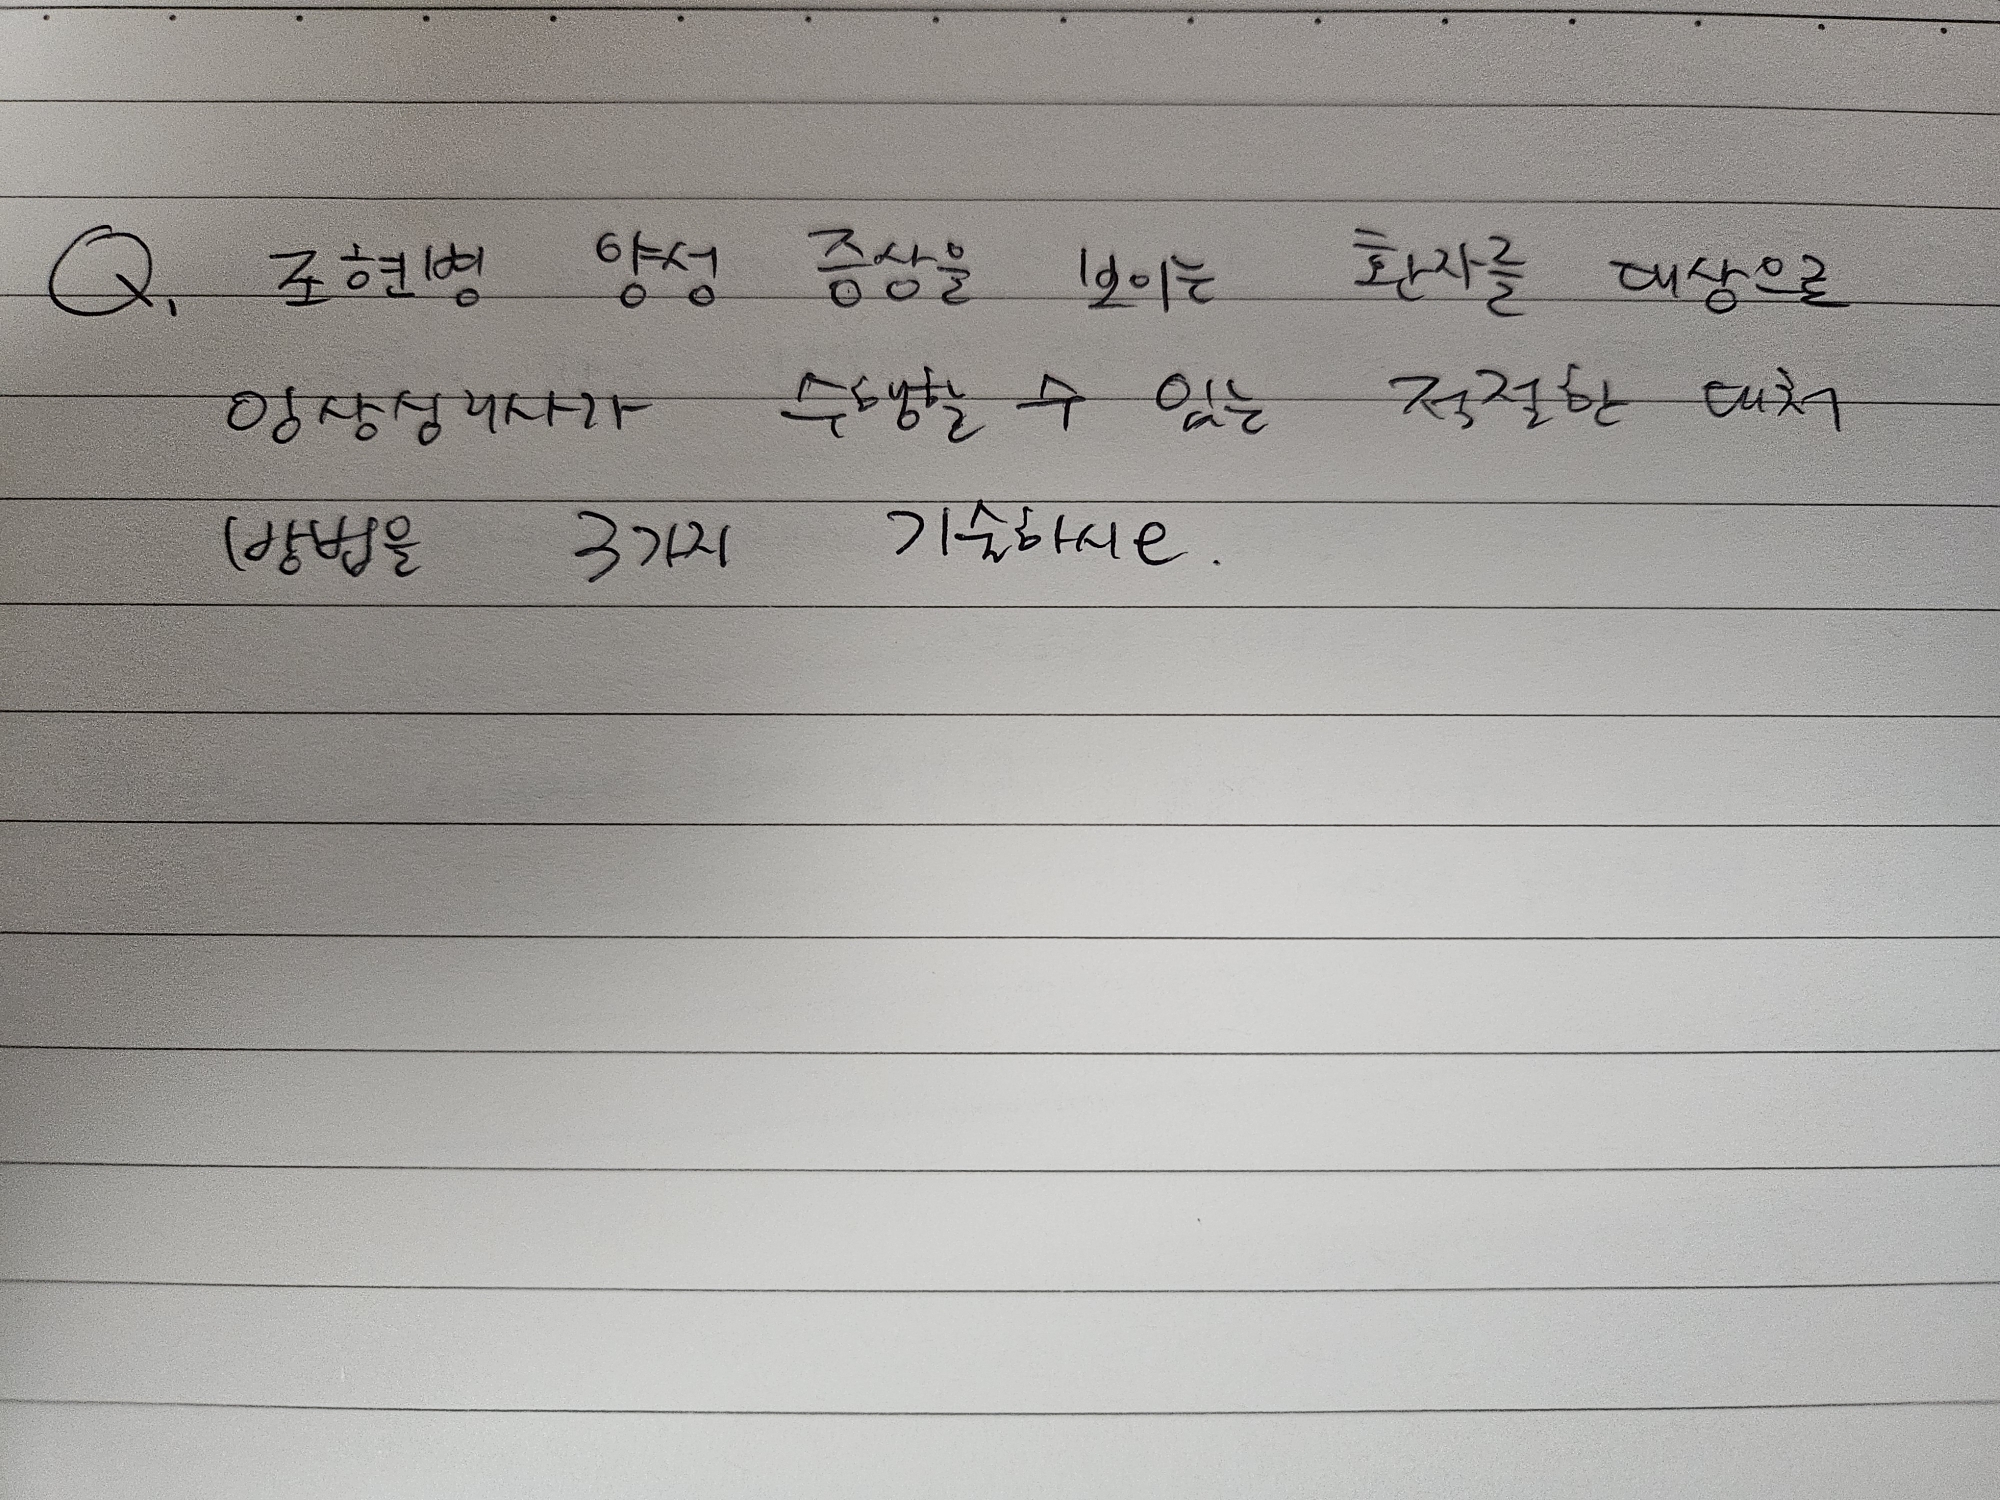 Q. 조현병 양성 증상을 보이는 환자를 대상으로
임상심리사가 수행할 수 있는 적절한 대처
방법을 3가지 기술하시오.